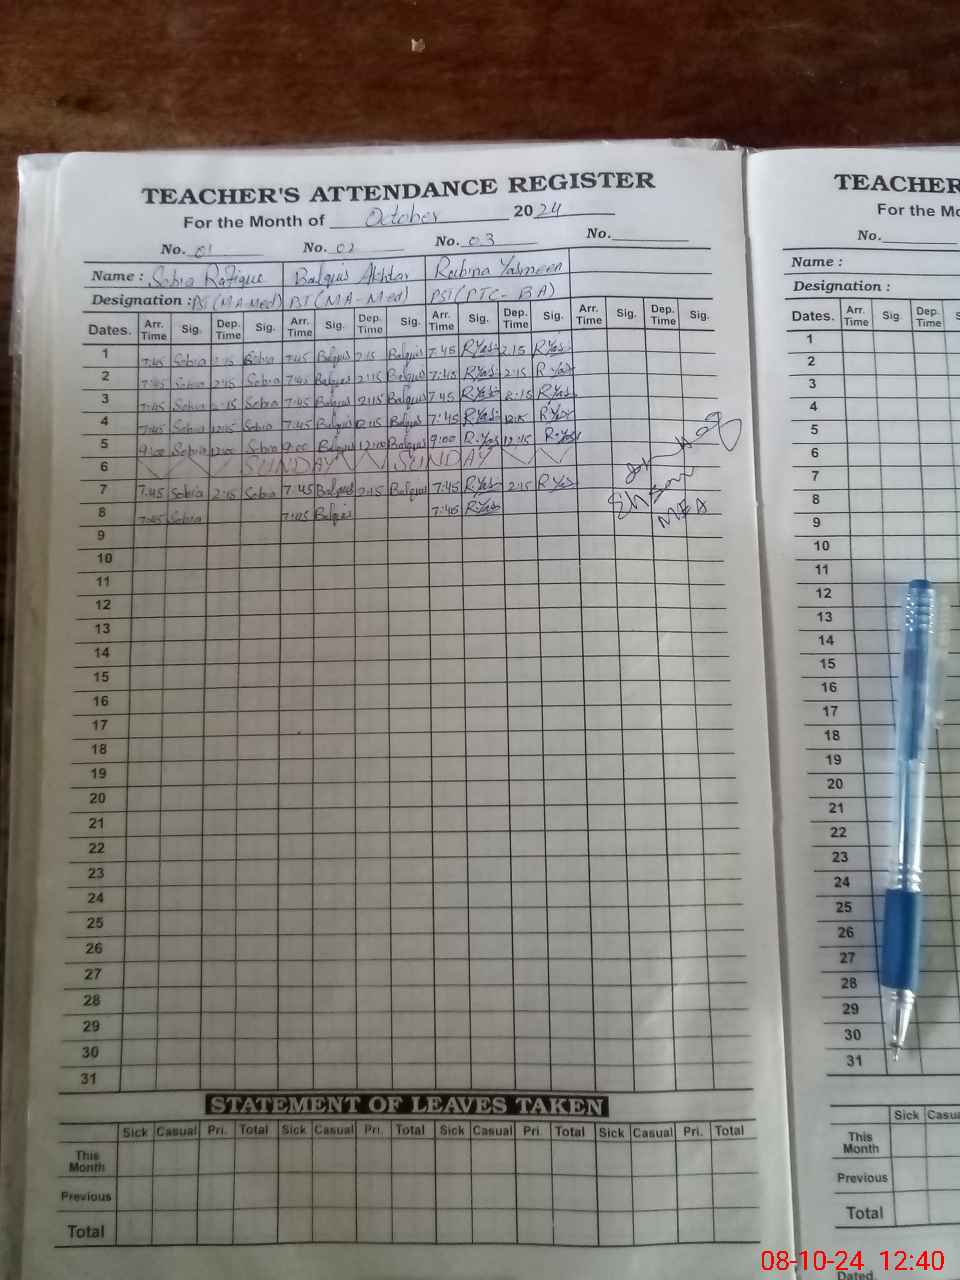 TEACHER'S ATTENDANCE REGISTER
For the Month of October 2024
No. 01 No. 02 No. 03 No.
Name : Sobia Rafique Balquis Akhtar Rubina Yasmeen
Designation : PST (MA Med) PST (MA-Med) PST (PTC-BA)
Dates. Arr. Time Sig. Dep. Time Sig. Arr. Time Sig. Dep. Time Sig. Arr. Time Sig. Dep. Time Sig. Arr. Time Sig. Dep. Time Sig.
1 7:45 Sobia 2:15 Sobia 7:45 Balquis 2:15 Balquis 7:45 R.Yas 2:15 R.Yas
2 7:45 Sobia 2:15 Sobia 7:45 Balquis 2:15 Balquis 7:45 R.Yas 2:15 R Yas
3 7:45 Sobia 2:15 Sobia 7:45 Balquis 2:15 Balquis 7:45 R.Yas 2:15 R.Yas
4 7:45 Sobia 12:15 Sobia 7:45 Balquis 12:15 Balquis 7:45 R.Yas 12:15 R.Yas
5 9:00 Sobia 12:00 Sobia 9:00 Balquis 12:00 Balquis 9:00 R.Yas 12:15 R.Yas
6 SUNDAY SUNDAY
7 7:45 Sobia 2:15 Sobia 7:45 Balquis 2:15 Balquis 7:45 R.Yas 2:15 R Yas
8 7:45 Sobia 7:45 Balquis 7:45 R.Yas
Ehsan
MEA
9
10
11
12
13
14
15
16
17
18
19
20
21
22
23
24
25
26
27
28
29
30
31
STATEMENT OF LEAVES TAKEN
Sick Casual Pri. Total Sick Casual Pri. Total Sick Casual Pri. Total Sick Casual Pri. Total
This Month
Previous
Total
TEACHER
For the Mo
No.
Name :
Designation :
Dates. Arr. Time Sig. Dep. Time
1
2
3
4
5
6
7
8
9
10
11
12
13
14
15
16
17
18
19
20
21
22
23
24
25
26
27
28
29
30
31
Sick Casua
This Month
Previous
Total
Dated
08-10-24 12:40